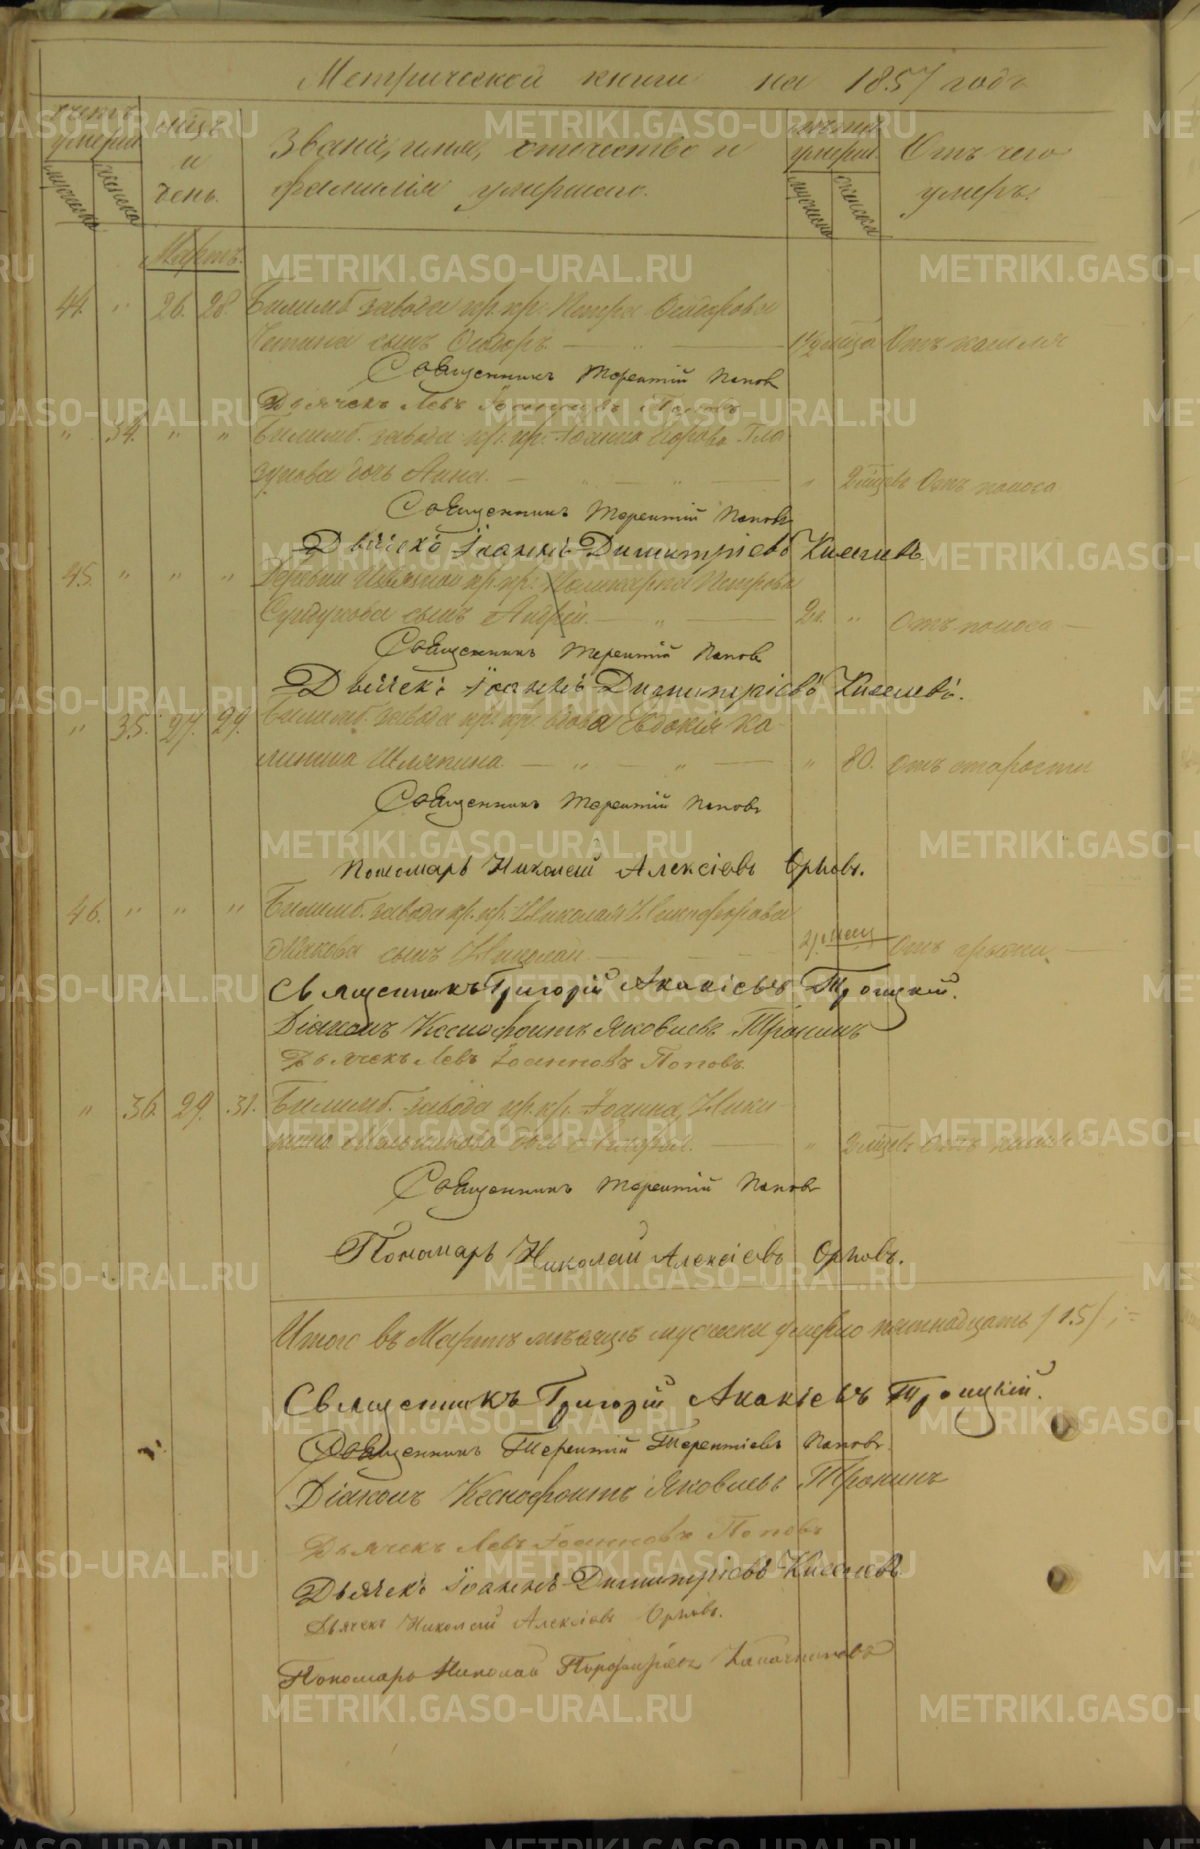 Метрической книги на 1857 годъ
Счетъ умерш. мужеска женска
Мѣсяцъ и день.
Званіе, имя, отечество и фамилія умершаго.
Лѣта умерш. мужеска женска
Отъ чего умеръ.
Мартъ.
44. " 26. 28. Билимб. завода кр. Петра Ѳедорова
сынъ Ѳеодоръ. — " — Отъ кашля
Священникъ Терентій Поповъ
Дьячекъ Левъ Іоанновъ Поповъ
" 34. " " Билимб. завода Іоанна Гла-
зунова дочь Анна. — " — " — " Отъ поноса
Священникъ Терентій Поповъ
Дьячекъ Іоаннъ Димитріевъ Киселевъ
45. " " " Деревни Поликарпа Петрова
сынъ Андрей. — " — 2 " Отъ поноса —
Священникъ Терентій Поповъ
Дьячекъ Іоаннъ Димитріевъ Киселевъ.
" 35. 27. 29. Билимб. завода вдова Евдокія Ка-
линина Шляпина — " — " — " 80. Отъ старости
Священникъ Терентій Поповъ
Пономарь Николай Алексіевъ Орловъ.
46. " " " Билимб. завода Николая Никифорова
сынъ Николай. — Отъ грыжи. —
Священникъ Григорій Акакіевъ Троицкій.
Діаконъ Ксенофонтъ Яковлевъ Тронинъ
Дьячекъ Левъ Іоанновъ Поповъ.
" 36. 29. 31. Билимб. завода Іоанна Ники-
дочь — " Отъ
Священникъ Терентій Поповъ
Пономарь Николай Алексіевъ Орловъ.
Итого въ Мартѣ мѣсяцѣ мужеска умерло пятнадцать /15/;=
Священникъ Григорій Акакіевъ Троицкій.
Священникъ Терентій Терентіевъ Поповъ.
Діаконъ Ксенофонтъ Яковлевъ Тронинъ
Дьячекъ Левъ Іоанновъ Поповъ
Дьячекъ Іоаннъ Димитріевъ Киселевъ
Дьячекъ Николай Алексіевъ Орловъ.
Пономарь Николай Порфирьевъ
METRIKI.GASO-URAL.RU